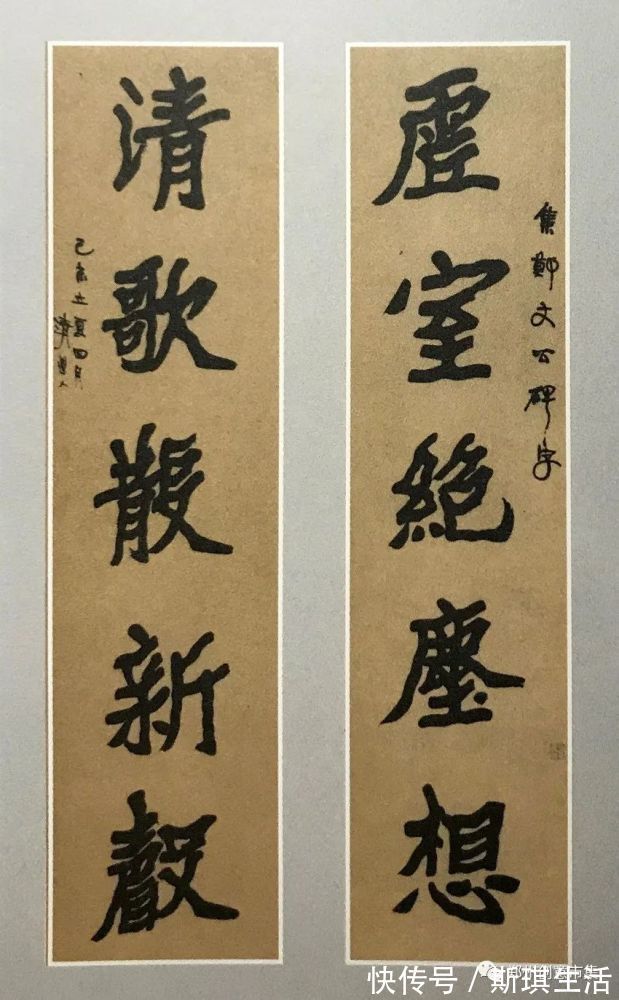 集鄭文公碑字
虚室絶塵想
清歌散新聲
己亥立夏四月
快传号 / 斯琪生活